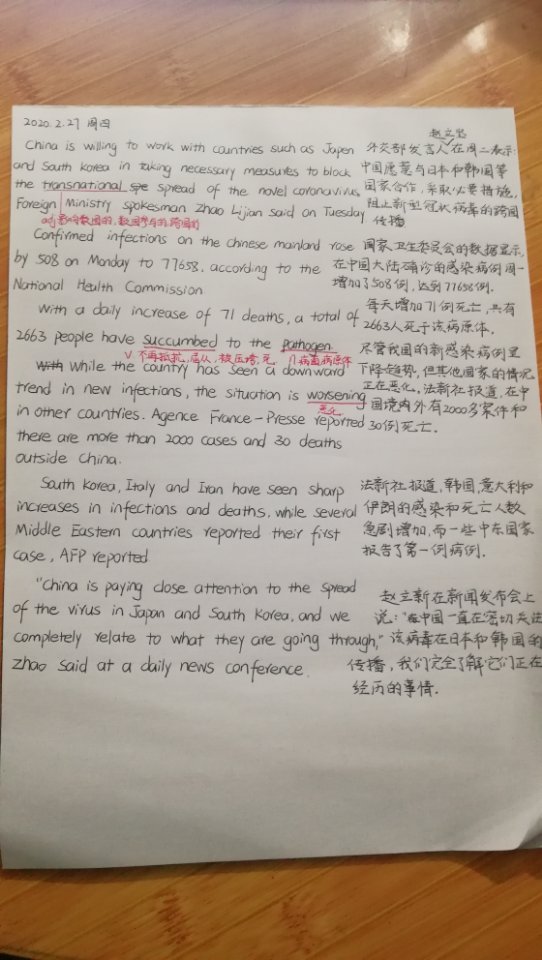 2020.2.27 周四
China is willing to work with countries such as Japen
and South Korea in taking necessary measures to block
the transnational spe spread of the novel coronavirus,
Foreign Ministry spokesman Zhao Lijian said on Tuesday
adj 影响数国的, 数国参与的, 跨国的
Confirmed infections on the chinese mainland rose
by 508 on Monday to 77658, according to the
National Health Commission
With a daily increase of 71 deaths, a total of
2663 people have succumbed to the pathogen.
V 不再抵抗, 屈从, 被压垮, 死 n 病菌病原体
With While the country has seen a downward
trend in new infections, the situation is worsening
恶化
in other countries. Agence France-Presse reported
there are more than 2000 cases and 30 deaths
outside China.
South Korea, Italy and Iran have seen sharp
increases in infections and deaths, while several
Middle Eastern countries reported their first
case, AFP reported
"China is paying close attention to the spread
of the virus in Japan and South Korea, and we
completely relate to what they are going through,"
Zhao said at a daily news conference.
赵立坚
外交部发言人在周二表示:
中国愿意与日本和韩国等
国家合作, 采取必要措施,
阻止新型冠状病毒的跨国
传播
国家卫生委员会的数据显示,
在中国大陆确诊的感染病例周一
增加了508例, 达到77658例.
每天增加71例死亡, 共有
2663人死于该病原体.
尽管我国的新感染病例呈
下降趋势, 但其他国家的情况
正在恶化, 法新社报道, 在中
国境内外有2000多案件和
30例死亡.
法新社报道, 韩国, 意大利和
伊朗的感染和死亡人数
急剧增加, 而一些中东国家
报告了第一例病例.
赵立新在新闻发布会上
说: "中国一直在密切关注
该病毒在日本和韩国的
传播, 我们完全了解它们正在
经历的事情.